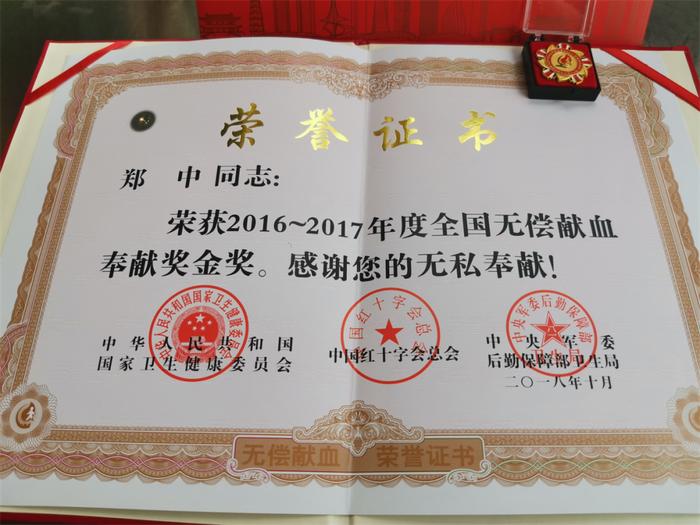 荣誉证书
郑 中 同志:
荣获2016~2017年度全国无偿献血
奉献奖金奖。感谢您的无私奉献!
中华人民共和国
国家卫生健康委员会
中国红十字会总会
中央军委
后勤保障部卫生局
二〇一八年十月
中华人民共和国国家卫生健康委员会
中国红十字会总会
中央军委后勤保障部
卫生局
无偿献血 荣誉证书